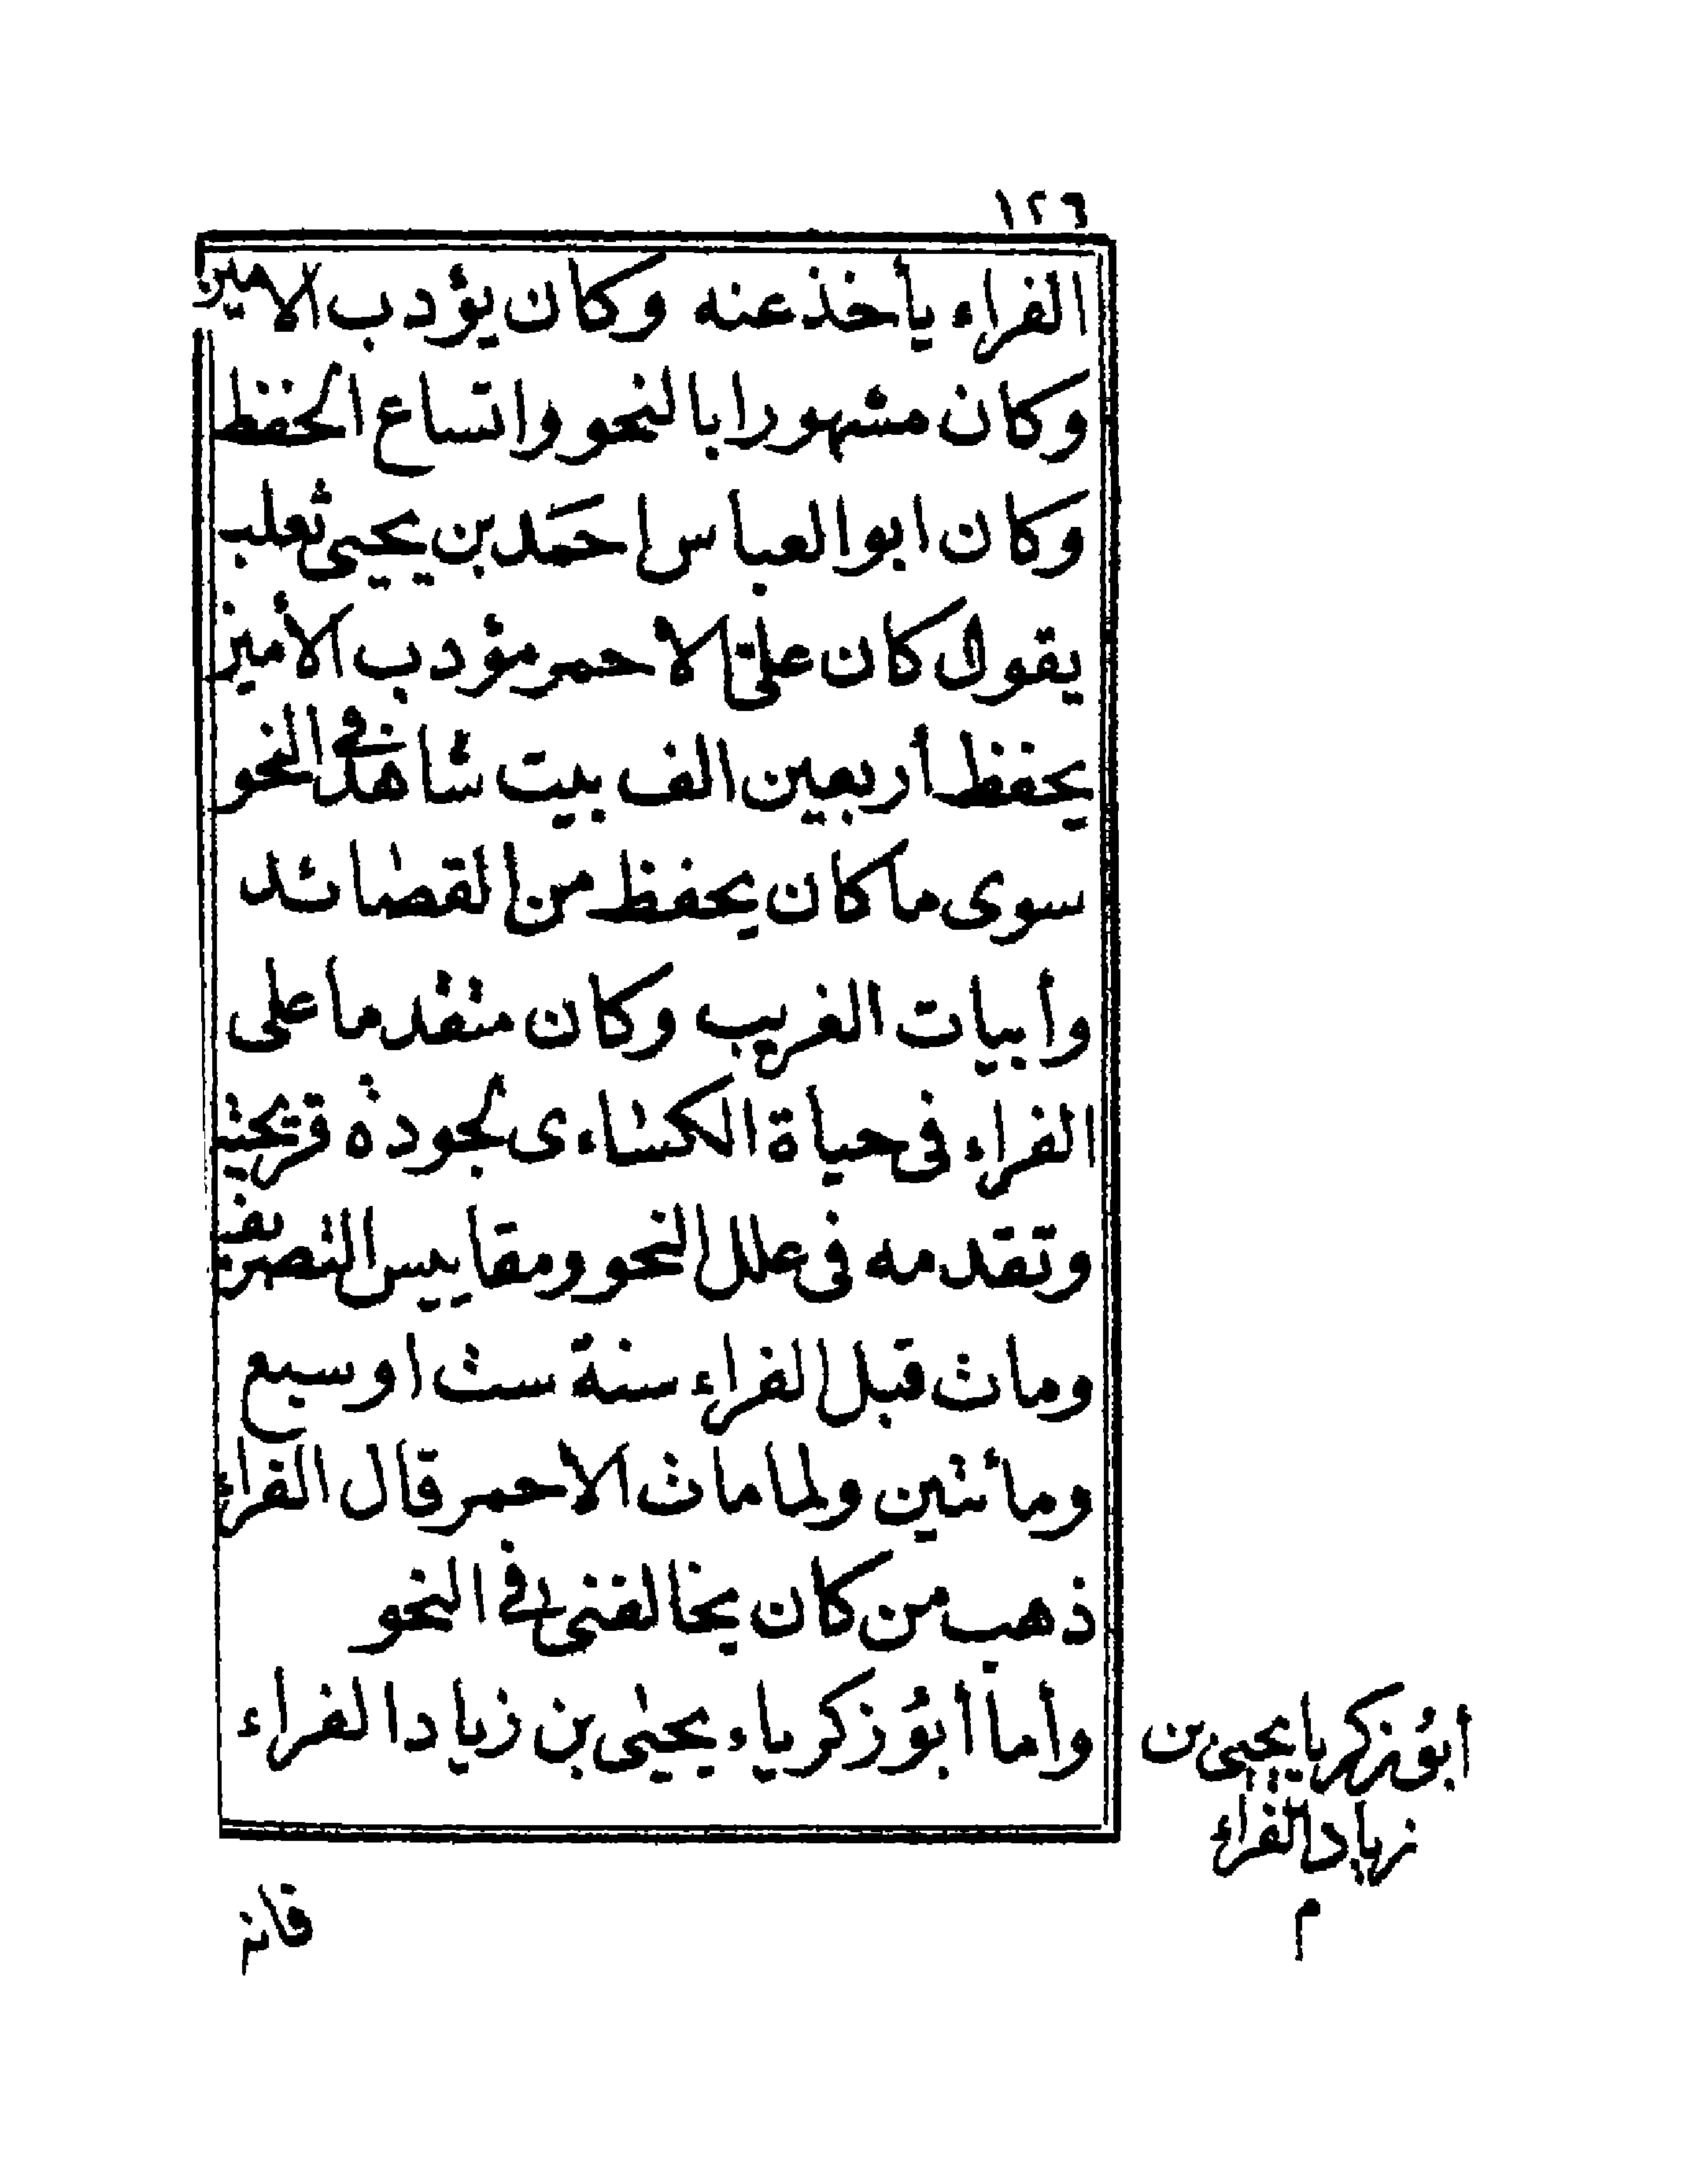 ١٢٦
الفراء يأخذ عنه وكان يؤدب الامين
وكان مشهورا بالنحو واتساع الحفظ
وكان ابو العباس احمَد بن يحيى ثعلب
يقول كان علىّ الاحمر مؤدب الأمين
يحفظ أربعين الف بيت شاهد فى النحو
سوى ما كان يحفظ من القصائد
وأبيات الغريب وكان متقدما على
الفراء فى حياة الكساءى لجودة قريحته
وتقدمه فى علل النحو ومقاييس التصريف
ومات قبل الفراء سنة ست او سبع
ومائتين ولما مات الاحمر قال الفراء
ذهب من كان يخالفنى فى النحو
وأما أبوُ زكرياء يحيى بن زياد الفراء
أبوُ زكريا يحيى بن
زياد الفراء
م
فانه